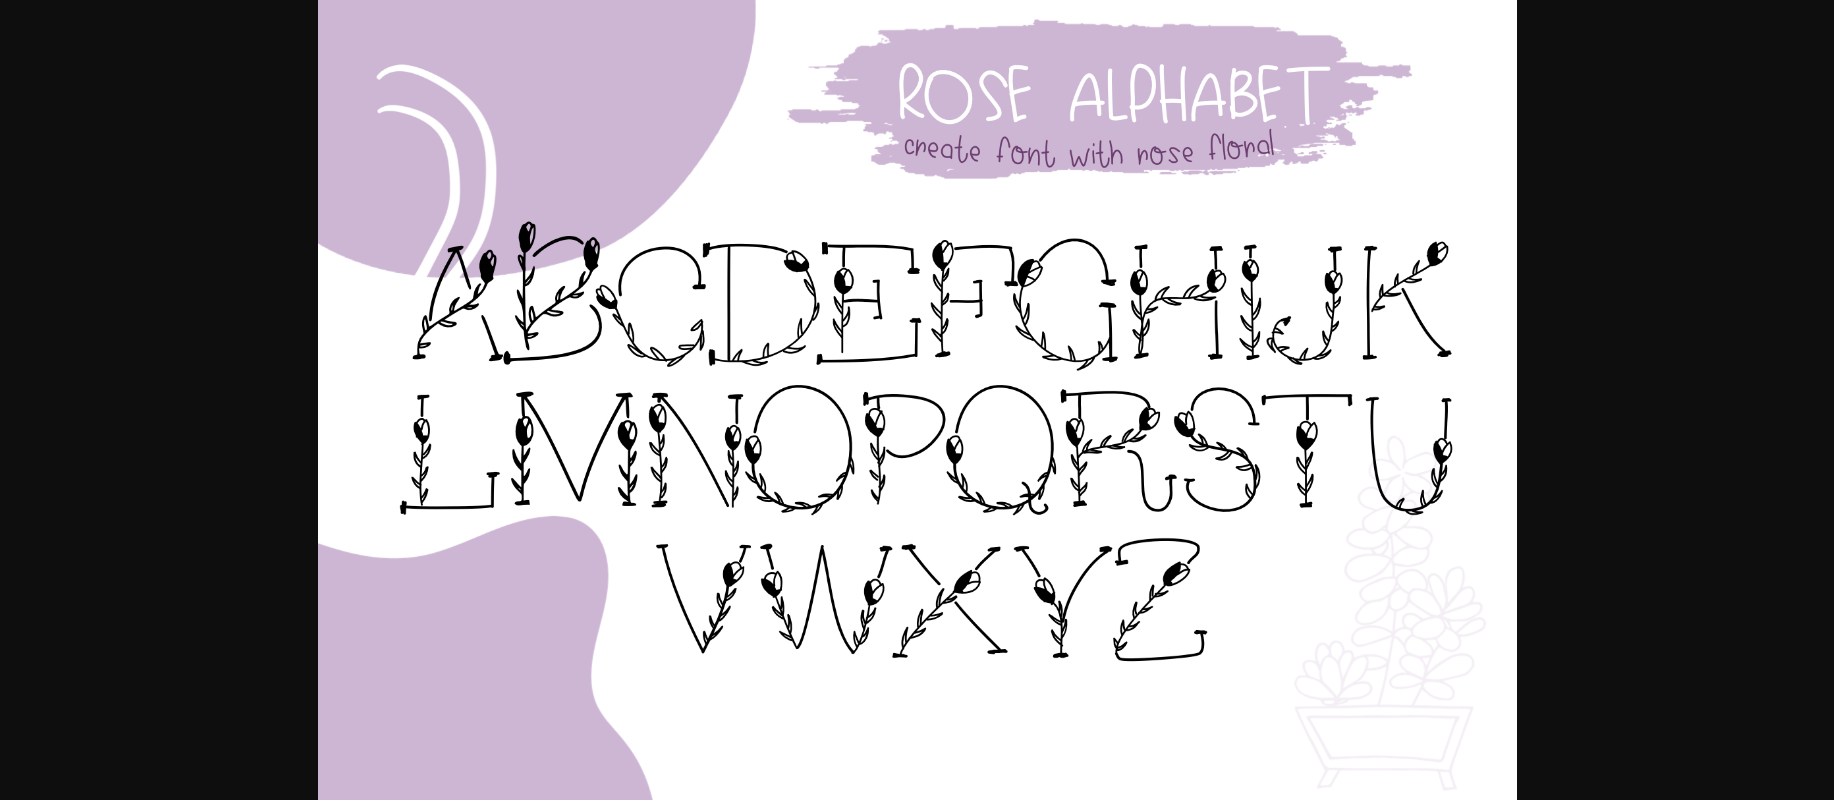 ROSE ALPHABET
create font with rose floral
ABCDEFGHIJK
LMNOPQRSTU
VWXYZ